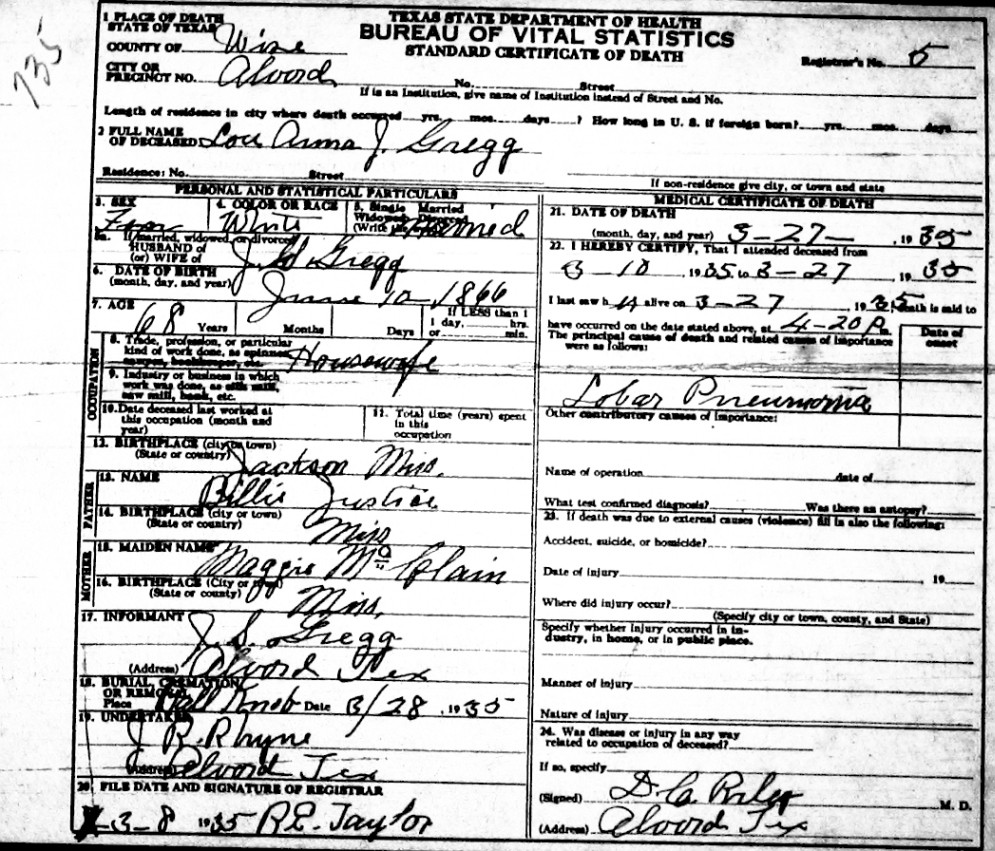 735
TEXAS STATE DEPARTMENT OF HEALTH
BUREAU OF VITAL STATISTICS
STANDARD CERTIFICATE OF DEATH
Registrar's No. 5
1 PLACE OF DEATH
STATE OF TEXAS
COUNTY OF Wise
CITY OR
PRECINCT NO. Alvord No. Street
If in an Institution, give name of Institution instead of Street and No.
Length of residence in city where death occurred yrs. mos. days ? How long in U. S. if foreign born? yrs. mos. days
2 FULL NAME
OF DECEASED Lou Anna J. Gregg
Residence: No. Street
If non-residence give city, or town and state
PERSONAL AND STATISTICAL PARTICULARS
3. SEX
Fem
4. COLOR OR RACE
White
5. Single Married
Widowed Divorced
(Write the Married
5a. If married, widowed or divorced
HUSBAND of
(or) WIFE of J. S. Gregg
6. DATE OF BIRTH
(month, day, and year) June 10 1866
7. AGE
68 Years Months Days
If LESS than 1
1 day, hrs.
or min.
OCCUPATION
8. Trade, profession, or particular
kind of work done, as spinner,
sawyer, bookkeeper, etc. Housewife
9. Industry or business in which
work was done, as silk mill,
saw mill, bank, etc.
10. Date deceased last worked at
this occupation (month and
year)
11. Total time (years) spent
in this
occupation
12. BIRTHPLACE (city or town)
(State or country) Jackson Miss.
FATHER
13. NAME
Billie Justice
14. BIRTHPLACE (city or town)
(State or country) Miss
MOTHER
15. MAIDEN NAME
Maggie Mc Clain
16. BIRTHPLACE (City or town)
(State or county) Miss.
17. INFORMANT
J. S. Gregg
(Address) Alvord Tex
18. BURIAL, CREMATION
OR REMOVAL
Place Ball Knob Date 3/28 , 1935
19. UNDERTAKER
J R. Rhyne
(Address) Alvord Tex
20. FILE DATE AND SIGNATURE OF REGISTRAR
3-8 1935 R.E. Taylor
MEDICAL CERTIFICATE OF DEATH
21. DATE OF DEATH
(month, day, and year) 3-27- , 1935
22. I HEREBY CERTIFY, That I attended deceased from
3-10 , 1935 to 3-27 , 1935
I last saw h alive on 3-27 1935, death is said to
have occurred on the date stated above, at 4-20 P m.
The principal cause of death and related causes of importance
were as follows:
Date of
onset
Lobar Pneumonia
Other contributory causes of importance:
Name of operation date of
What test confirmed diagnosis? Was there an autopsy?
23. If death was due to external causes (violence) fill in also the following:
Accident, suicide, or homicide?
Date of injury , 19
Where did injury occur?
(Specify city or town, county, and State)
Specify whether injury occurred in in-
dustry, in home, or in public place.
Manner of injury
Nature of injury
24. Was disease or injury in any way
related to occupation of deceased?
If so, specify
(Signed) D. C. Riley M. D.
(Address) Alvord Tex